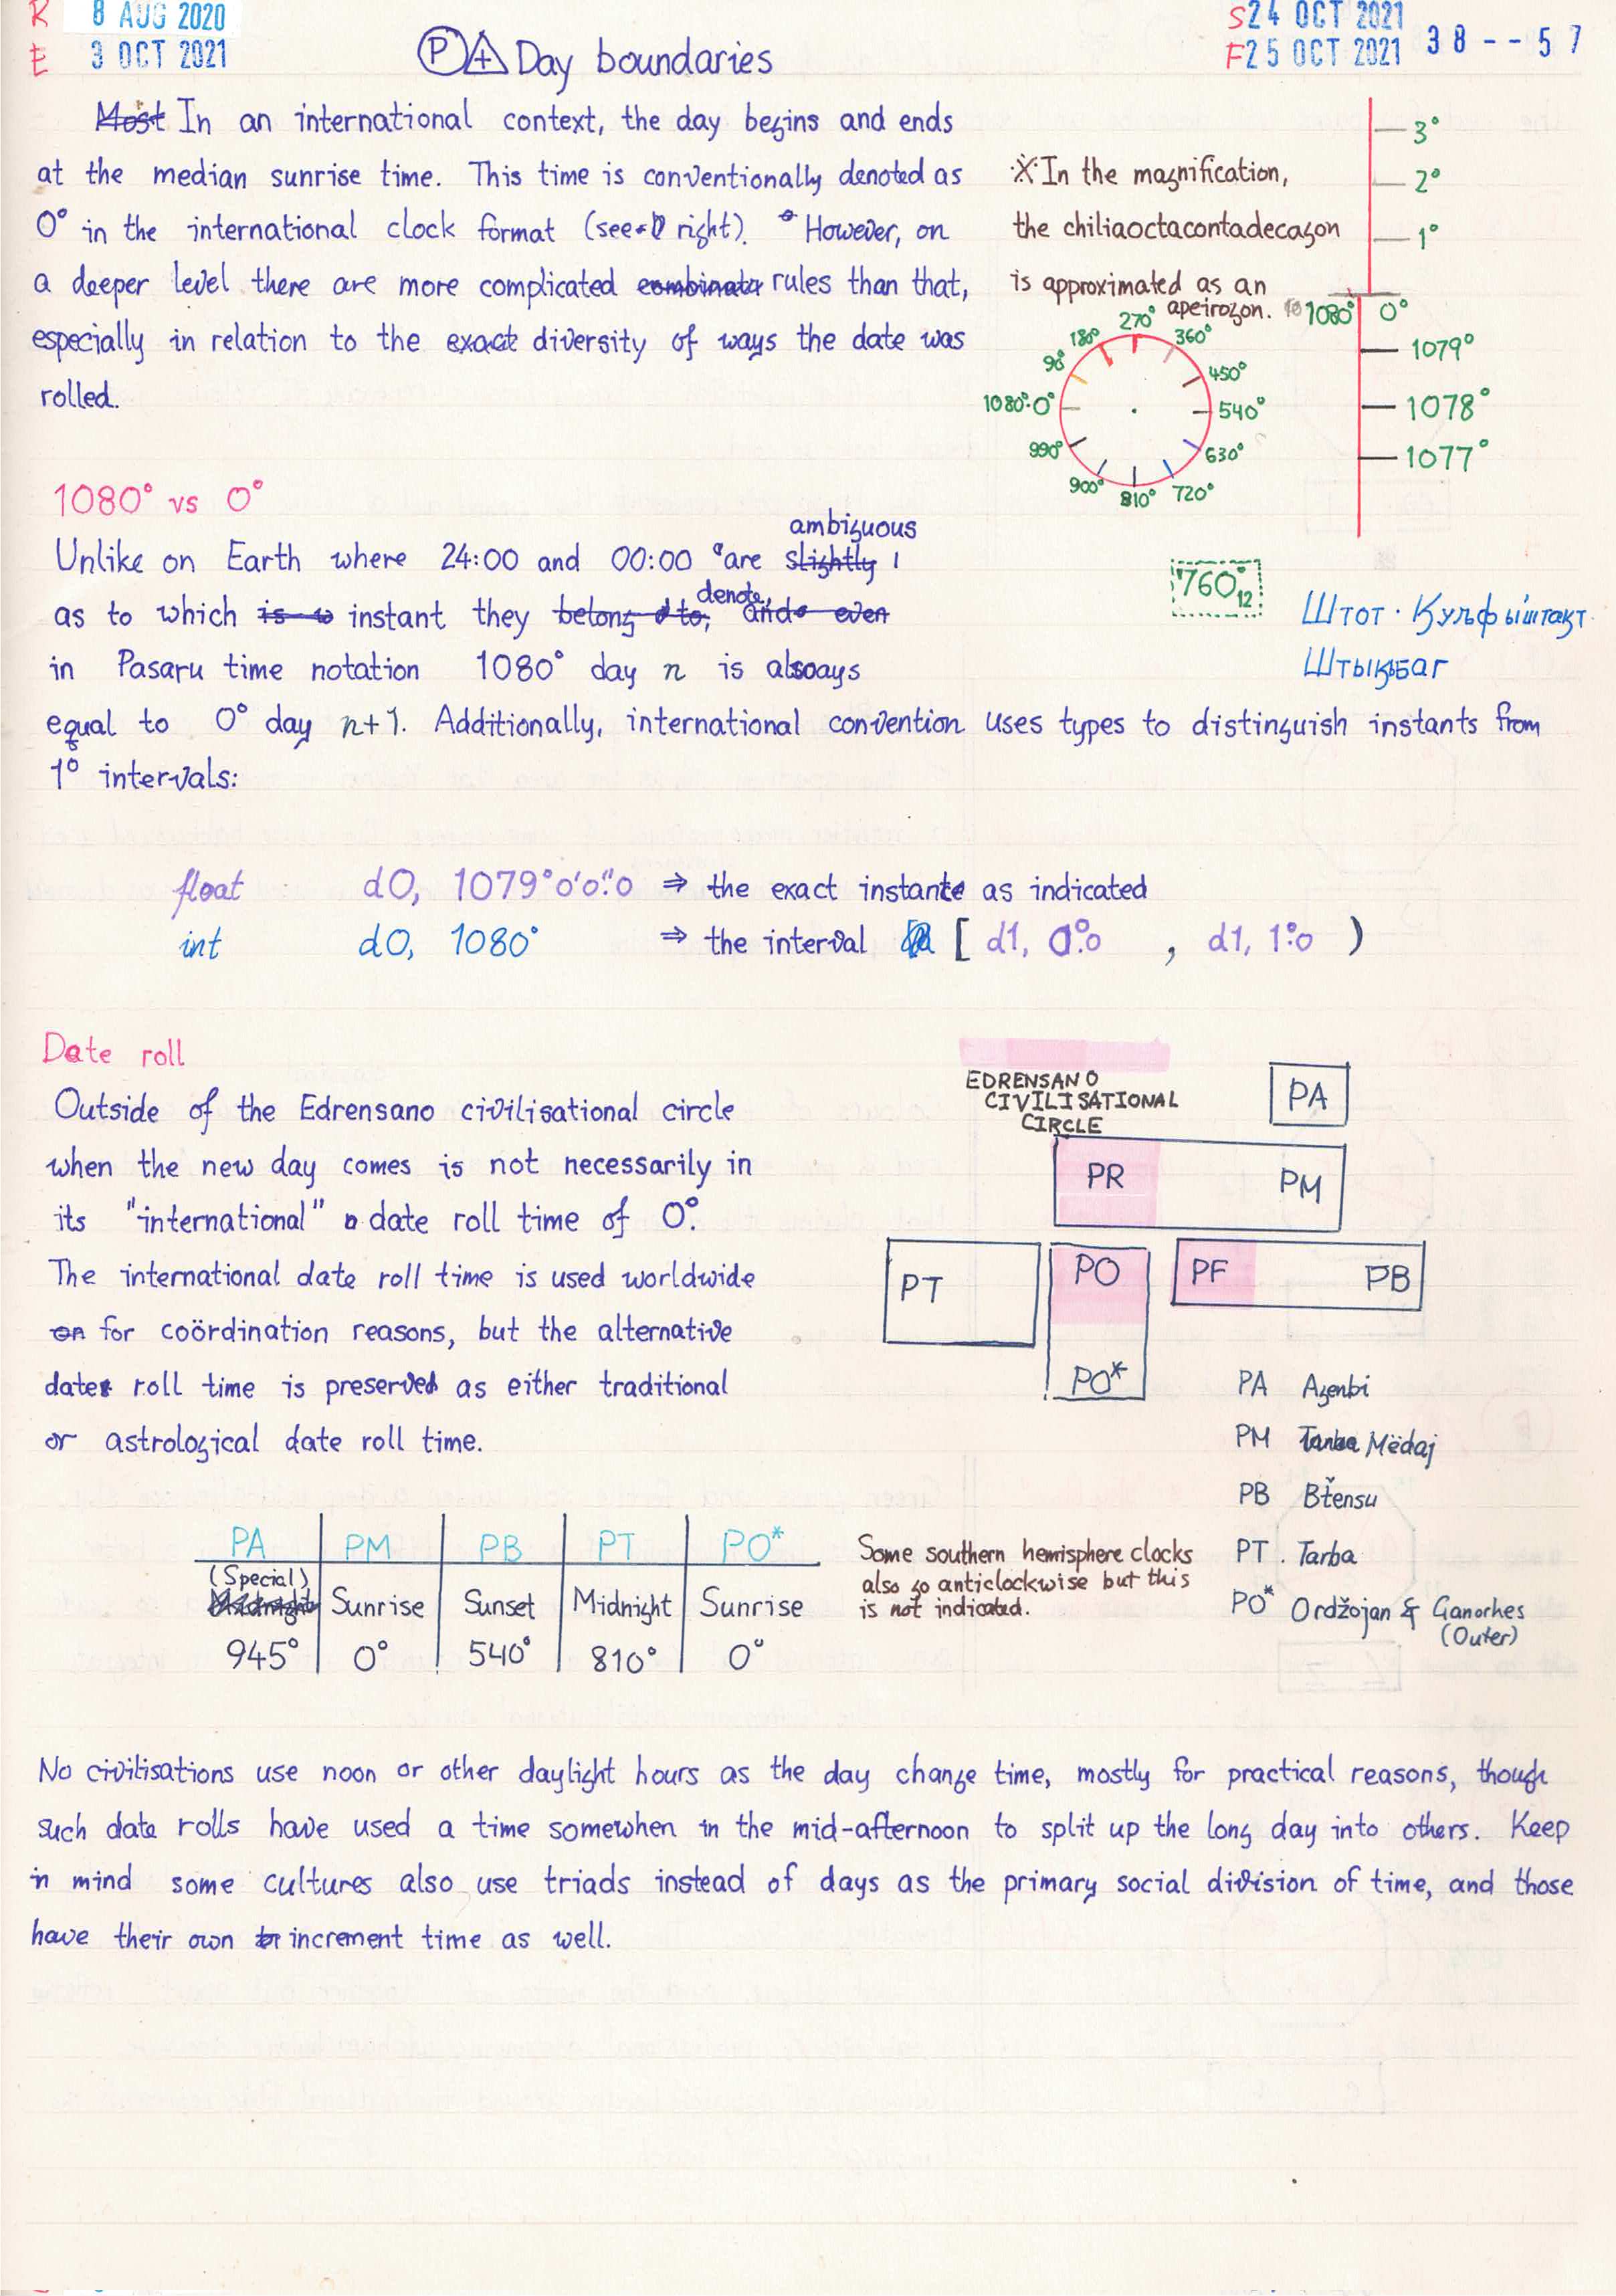 R 8 AUG 2020
E 3 OCT 2021
S 24 OCT 2021
F 25 OCT 2021
38--57
P 4 Day boundaries
Most In an international context, the day begins and ends
at the median sunrise time. This time is conventionally denoted as
0° in the international clock format (see right). However, on
a deeper level there are more complicated rules than that,
especially in relation to the exact diversity of ways the date was
rolled.
※In the magnification,
the chiliaoctacontadecagon
is approximated as an
apeirogon.
270°
180° 360°
90° 450°
1080° 0° 540°
990° 630°
900° 810° 720°
3°
2°
1°
1080° 0°
1079°
1078°
1077°
1080° vs 0°
ambiguous
Unlike on Earth where 24:00 and 00:00 are slightly
denote,
as to which instant they belong to, and even
in Pasaru time notation 1080° day n is always
equal to 0° day n+1. Additionally, international convention uses types to distinguish instants from
1° intervals:
760°12
float d0, 1079°0'0"0 ⇒ the exact instant as indicated
int d0, 1080° ⇒ the interval [ d1, 0°0 , d1, 1°0 )
Date roll
Outside of the Edrensano civilisational circle
when the new day comes is not necessarily in
its "international" date roll time of 0°.
The international date roll time is used worldwide
on for coördination reasons, but the alternative
date roll time is preserved as either traditional
or astrological date roll time.
EDRENSANO
CIVILISATIONAL
CIRCLE
PA
PR PM
PT PO PF PB
PO*
PA Agenbi
PM Tanba Mëdaj
PB Bťensu
PT Tarba
PO* Ordžojan & Ganorhes
(Outer)
PA PM PB PT PO*
(Special)
Midnight Sunrise Sunset Midnight Sunrise
945° 0° 540° 810° 0°
Some southern hemisphere clocks
also go anticlockwise but this
is not indicated.
No civilisations use noon or other daylight hours as the day change time, mostly for practical reasons, though
such date rolls have used a time somewhen in the mid-afternoon to split up the long day into others. Keep
in mind some cultures also use triads instead of days as the primary social division of time, and those
have their own increment time as well.